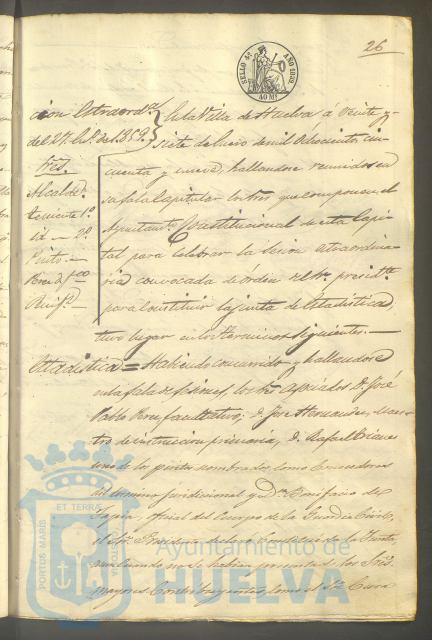 26
SELLO 4º AÑO 1859
40 Ms
cion Estraordª
del 27. En.º de 1859.
En la Villa de Huelva á veinte y
siete de Enero de mil ochocientos cin
cuenta y nueve, hallandose reunidos en
su sala Capitular los Sres que componen el
Ayuntamtº Constitucional de esta Capi
tal para celebrar la Sesion estraordina
ria convocada de órden del Sr. presidte
para constituir la junta de Estadistica
tuvo lugar en los terminos siguientes.
Sres.
Alcalde.
Teniente 1º
id — 2º
Estadistica = Habiendo concurrido y hallandose
en la sala de sesiones, los Sres asociados D. José
Pablo Perez facultativo; D. José Hernandez, maes
tro de instruccion primaria, D. Rafael
uno de los peritos nombrados como conocedores
del termino jurisdicional y Dn Bonifacio de
oficial del Cuerpo de la Guardia Civil,
el Sr. Presidente declaró constituida la Junta
aun cuando no se habian presentado los Sres
mayores Contribuyentes, como el Sr. Cura
PORTUS MARIS ET TERRAE CUSTODIA
Ayuntamiento de
HUELVA